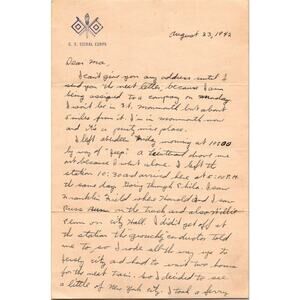 U. S. SIGNAL CORPS
August 23, 1942
Dear Ma,
I can't give you any address until I
send you the next letter, because I am
being assigned to a company on Monday
I won't be in Ft. Monmouth but about
5 miles from it. I'm in monmouth now
and it's a pretty nice place.
I left Friday morning at 10:00
by way of "jeep" a lieutenant drove me
out because I what alone. I left the
station 10:30 and arrived here at 5:15 P.M.
the same day. Going though Phila. I saw
Franklin Field where Harold and I saw
on the track and also Willie
Penn on City Hall. I didn't get off at
the station the grouchy conductor told
me to so I rode all the way up to
Jersey city and had to wait two hours
for the next train. So I decided to see
a little of New York city. I took a ferry